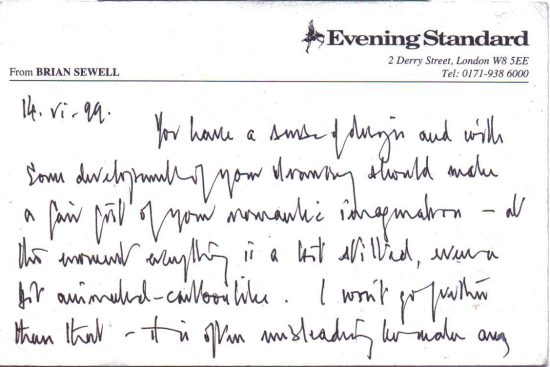 Evening Standard
2 Derry Street, London W8 5EE
From BRIAN SEWELL
Tel: 0171-938 6000
14. vi. 99.
You have a sense of design and with
some development of your drawing should make
a fair fist of your romantic imagination – at
this moment everything is a bit stilted, even a
bit animated-cartoonlike. I won't go further
than that – it is often misleading to make any